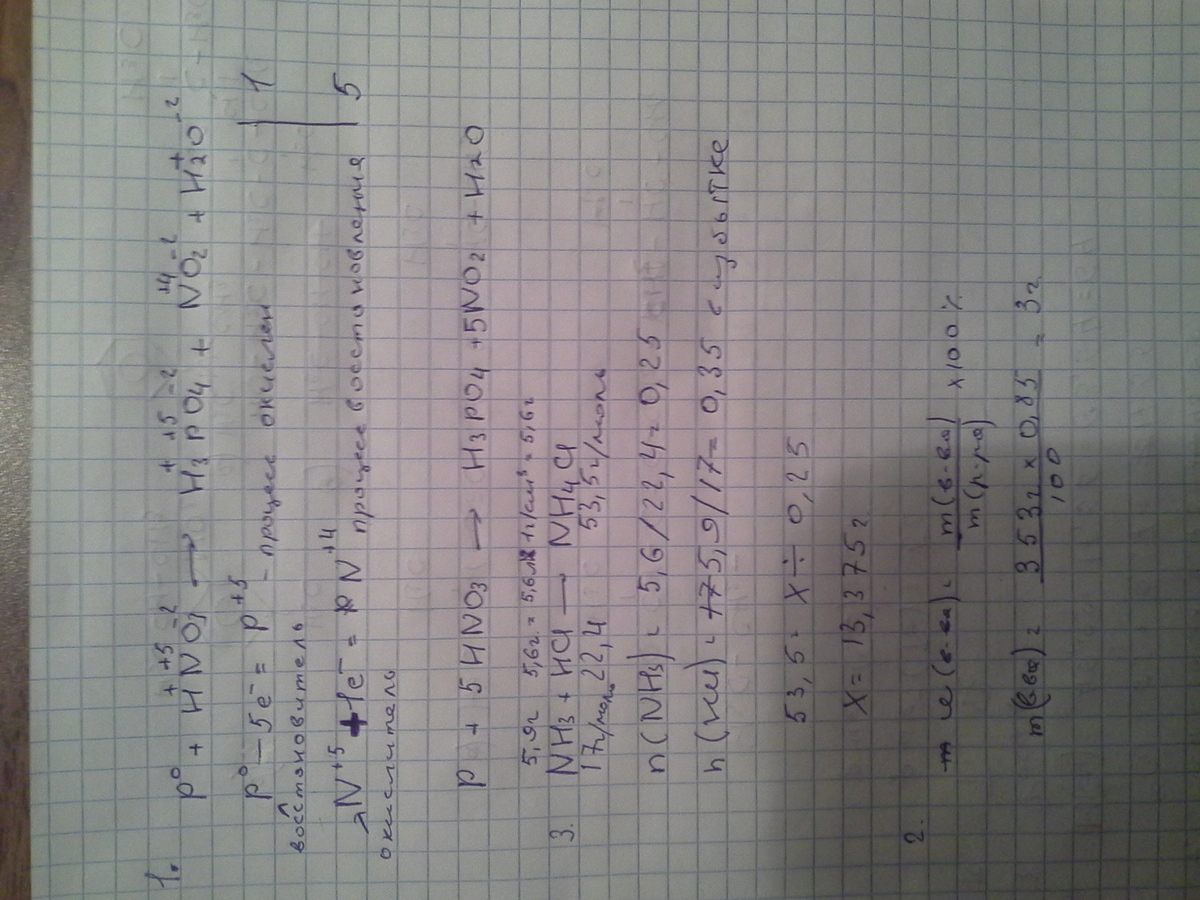 1.
+5 -2 + +5 -2 +4 -2 + -2
P⁰ + HNO3 → H3PO4 + NO2 + H2O
P⁰ – 5e⁻ = P⁺⁵ - процесс окислен 1
восстановитель
N⁺⁵ + 1e⁻ = N⁺⁴ процесс восстановления 5
окислитель
P + 5HNO3 → H3PO4 + 5NO2 + H2O
5,9г 5,6г = 5,6г
3. NH3 + HCl — NH4Cl
17г/моль 22,4 53,5г/моль
n(NH3) = 5,6/22,4 = 0,25
5,9/17 = 0,35 в избытке
53,5 = x ÷ 0,25
X = 13,375г
2. (в-ва) = m(в-ва) / m(р-ра) x100%
m(вва) = 353г x 0,85 / 100 = 3г